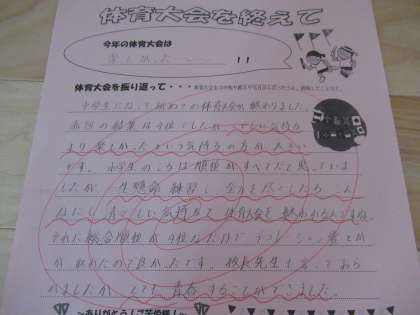 体育大会を終えて
今年の体育大会は
楽しかったー !!
体育大会を振り返って・・・
中学生になって初めての体育大会が終わりました。
赤団の結果は4位でしたが くやしい気持ち
より楽しかったという気持ちの方が大きい
です。小学生のころは順位がすべてだと思っていま
したが、一生懸命練習し 全力を尽くしたら こん
なにも 清々しい気持ちで体育大会を終われるんですね。
それに総合順位が4位なだけで
が取れたので良かったです。校長先生も言っておら
れましたが とても 青春することができました。
～ありがとう！ご苦労様！～